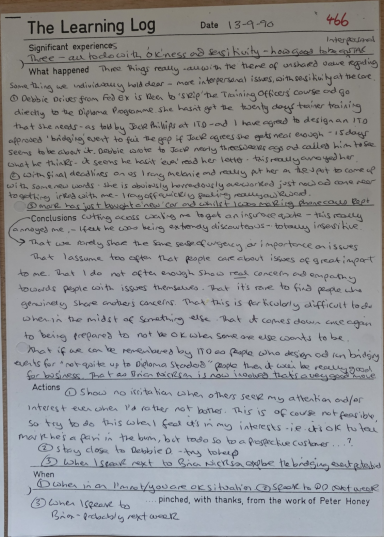 466
The Learning Log Date 13-9-90
Interpersonal
Significant experiences
Three - all to do with OK ness and sensitivity - how good to be on this
What happened Three things really - all with the theme of unshared value regarding
some thing we individually hold dear - more interpersonal issues, with sensitivity at the core.
① Debbie Driver from Fed Ex is keen to 'skip' the Training Officers course and go
directly to the Diploma Programme she hasn't got the twenty days trainer training
that she needs - as told by Jack Phillips at ITO - and I agreed to design an ITO
approved 'bridging' event to fill the gap if Jack agrees she gets near enough - 15 days
seems to be about it. Debbie wrote to Jack nearly three weeks ago and called him to see
what he thinks - it seems he hasn't 'even' read her letter - this really annoyed her
② With final deadlines on us I rang Melanie and really put her on the spot to come up
with some new words - she is obviously horrendously overworked just now and came near
to getting irked with me - I rang off quickly feeling really unloved.
③ Mark has just bought a new car and whilst I was making phone calls kept
Conclusions cutting across wanting me to get an insurance quote - this really
annoyed me - I felt he was being extremely discourteous - totally insensitive.
→ That we rarely share the same sense of urgency or importance on issues
That I assume too often that people care about issues of great import
to me. That I do not often enough show real concern and empathy
towards people with issues themselves. That it's rare to find people who
genuinely share another's concerns. That this is particularly difficult to do
when in the midst of something else. That it comes down once again
to being prepared to not be OK when some one else wants to be.
That if we can be remembered by ITO as people who design and run bridging
events for "not quite up to Diploma Standard" people then it will be really good
for business. That as Brian Nicrson is now involved that's a very good move
Actions ① Show no irritation when others seek my attention and/or
interest even when I'd rather not bother. This is of course not feasible,
so try to do this when I feel it's in my interests - i.e. it's OK to tell
Mark he's a pain in the bum, but to do so to a prospective customer...?
② Stay close to Debbie D - try to help
③ When I speak next to Brian Nicrson explore the bridging event potential
When
① When in an I'm not/you are OK situation ② Speak to DD next week
③ When I speak to
Brian - probably next week
....pinched, with thanks, from the work of Peter Honey